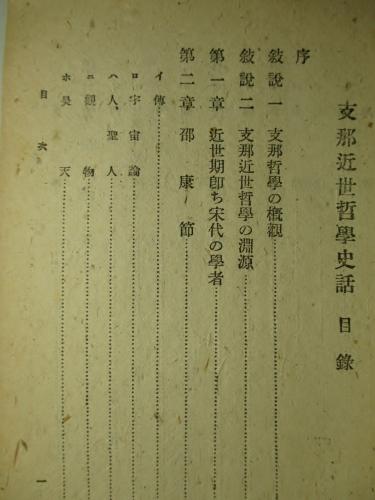 支那近世哲學史話 目錄
序
敍說一 支那哲學の槪觀
敍說二 支那近世哲學の淵源
第一章 近世期卽ち宋代の學者
第二章 邵康節
イ 傳
ロ 宇宙論
ハ 人、聖人
ニ 觀物
ホ 昊天
目次
一